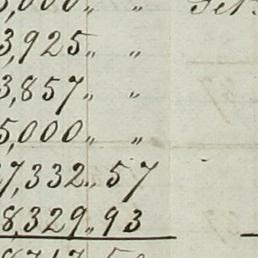 5,000 〃 〃 Feb.
3,925 〃 〃
3,857 〃 〃
5,000 〃 〃
7,332 〃 57
8,329 〃 93